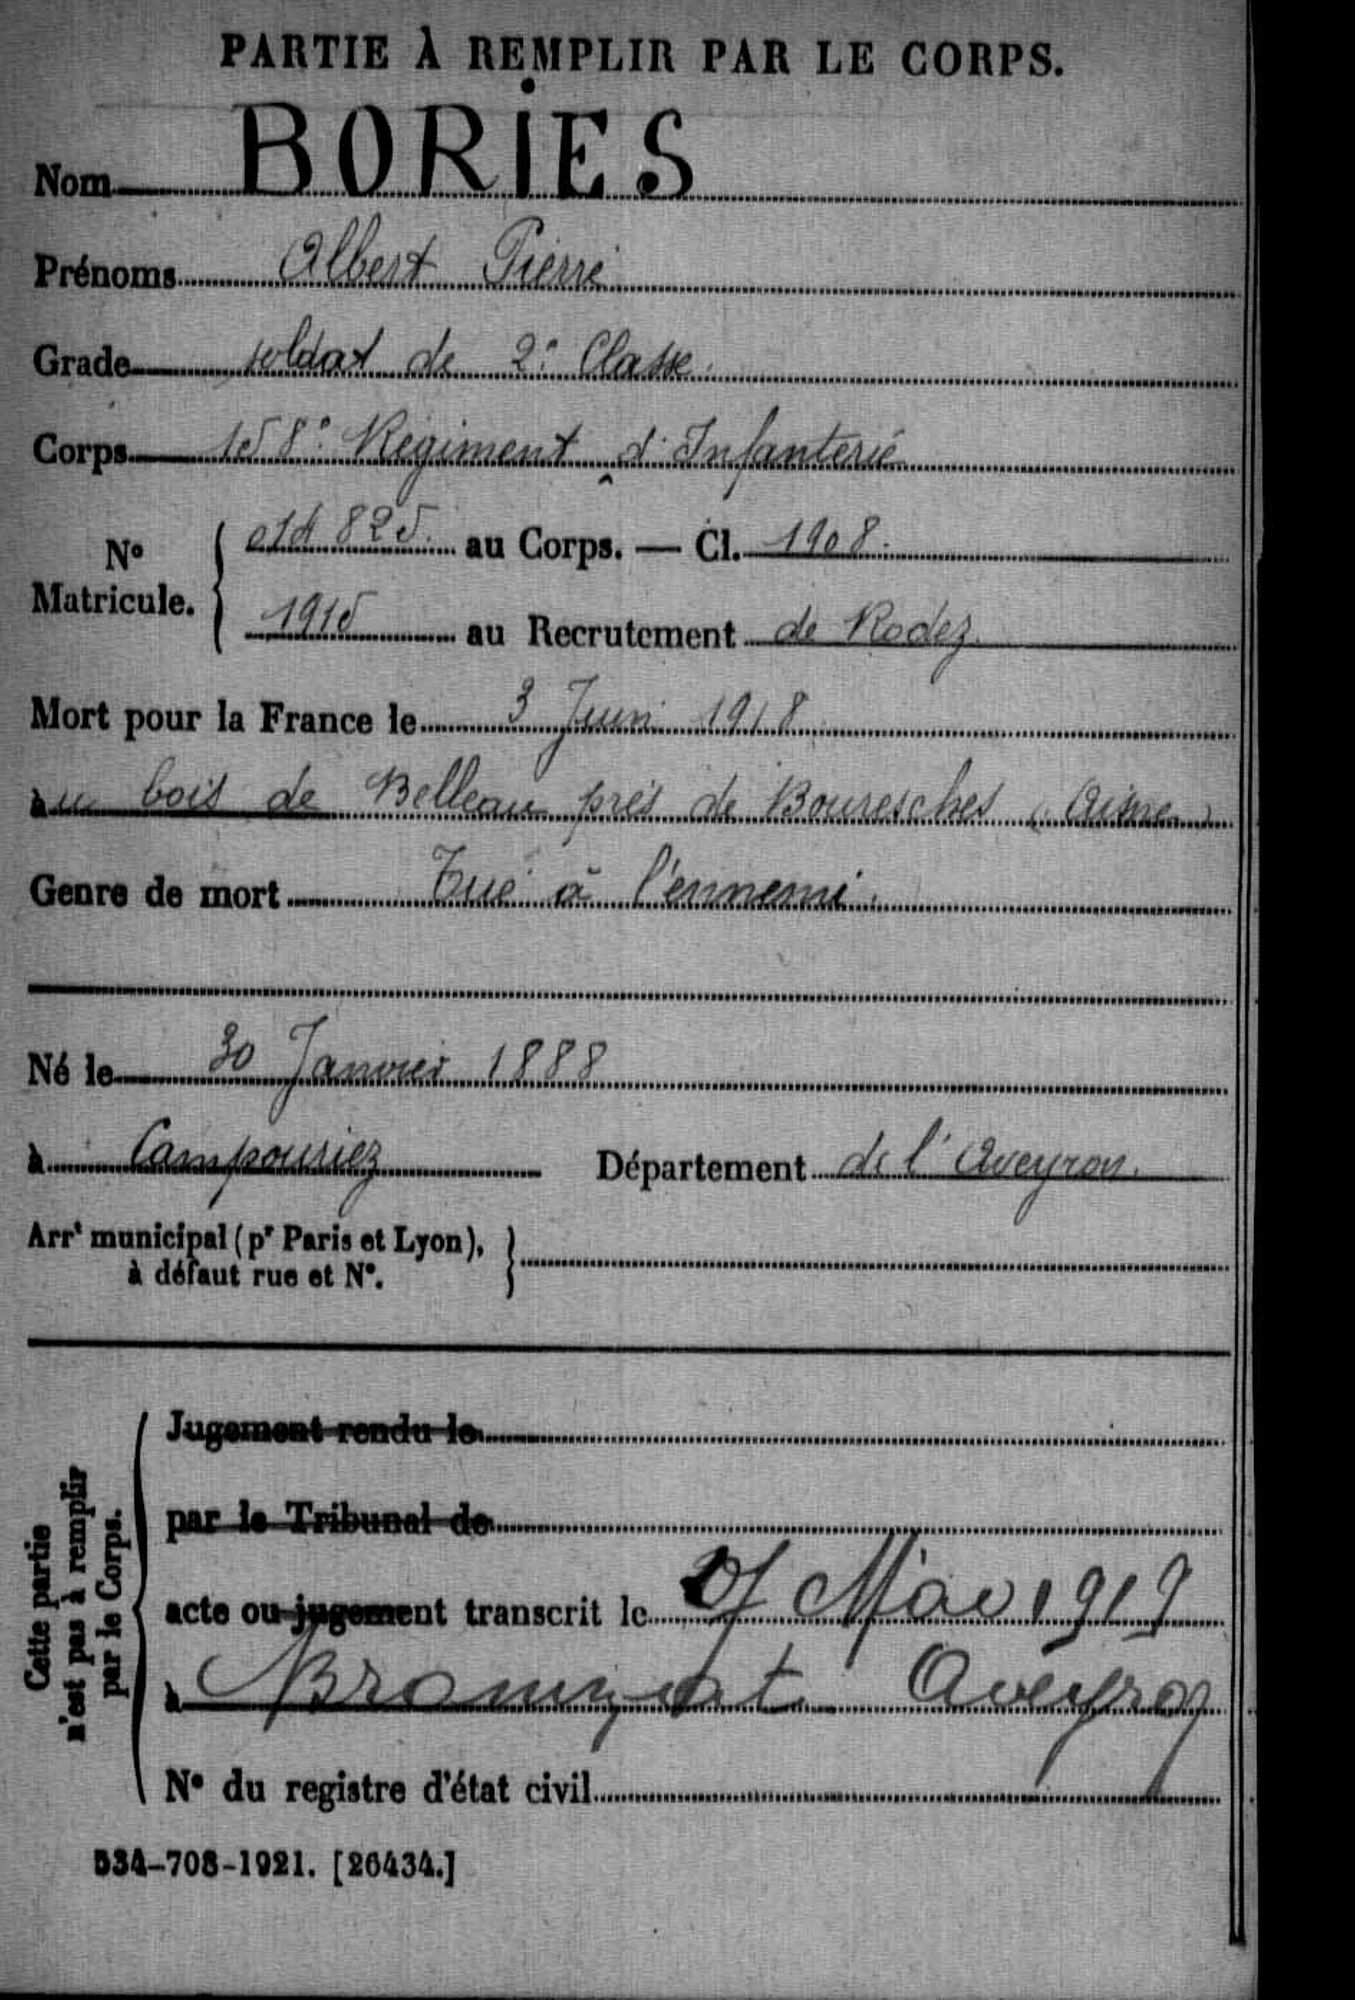 PARTIE À REMPLIR PAR LE CORPS.
Nom BORIES
Prénoms Albert Pierre
Grade soldat de 2e Classe.
Corps 158e Régiment d'Infanterie
No Matricule. 825. au Corps. — Cl. 1908.
1915 au Recrutement de Rodez.
Mort pour la France le 3 Juin 1918
au bois de Belleau près de Bouresches (Aisne)
Genre de mort Tué à l'ennemi.
Né le 30 Janvier 1888
à Campouriez Département de l'Aveyron.
Arrt municipal (pr Paris et Lyon),
à défaut rue et No.
Cette partie
n'est pas à remplir
par le Corps.
Jugement rendu le
par le Tribunal de
acte ou jugement transcrit le Mai 1919
à Brommat Aveyron
No du registre d'état civil
534-708-1921. [26434.]